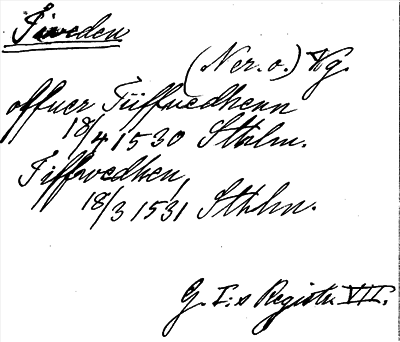 Tiveden
(Ner. o.) Kg.
offuer Tiiffuedhenn
18/4 1530 Sthlm.
Tiffwedhen,
18/3 1531 Sthlm.
G. I:s Registr. VII.